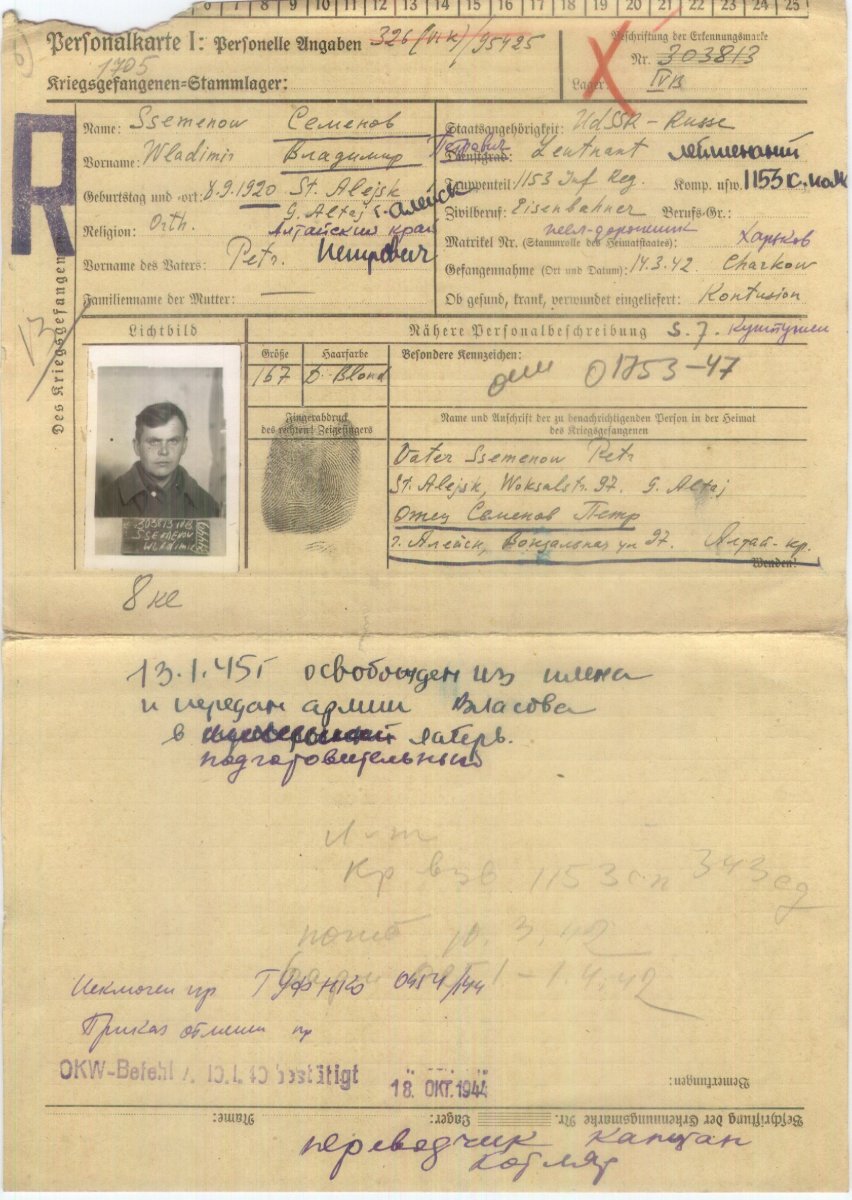 6 7 8 9 10 11 12 13 14 15 16 17 18 19 20 21 22 23 24 25
Personalkarte I: Personelle Angaben 326/(VI K)/95425
Beschriftung der Erkennungsmarke
Nr. 303813
1705
Kriegsgefangenen=Stammlager:
Lager: IV B
R
Des Kriegsgefangenen
Name: Ssemenow Семенов
Vorname: Wladimir Владимир Петрович
Geburtstag und -ort: 8.9.1920 St. Alejsk
G. Altaj г. Алейск
Religion: Orth. Алтайский край
Vorname des Vaters: Petr. Петрович
Familienname der Mutter: —
Staatsangehörigkeit: UdSSR - Russe
Dienstgrad: Leutnant лейтенант
Truppenteil: 1153 Inf Reg. Komp. usw.: 1153 с. полк
Zivilberuf: Eisenbahner Berufs-Gr.:
Matrikel Nr. (Stammrolle des Heimatstaates): Харьков
Gefangennahme (Ort und Datum): 14.3.42 Charkow
Ob gesund, krank, verwundet eingeliefert: Kontusion
Lichtbild
Nähere Personalbeschreibung
Größe Haarfarbe Besondere Kennzeichen:
167 D. Blond 01753-47
Fingerabdruck
des rechten! Zeigefingers
Name und Anschrift der zu benachrichtigenden Person in der Heimat
des Kriegsgefangenen
Vater Ssemenow Petr
St. Alejsk, Woksalstr. 97. G. Altaj
Отец Семенов Петр
г. Алейск, Вокзальная ул 97. Алтай-кр.
Wenden!
303813 IVB
SSEMENOW
WLADIMIR
13.1.45г освобожден из плена
и передан армии Власова
в лагерь.
подготовительный
Л-т
кр взв 1153 сп 343 сд
погиб 10.3.42
1-1.4.42
Исключен пр ГУФ НКО 0454/44
Приказ отмени пр
OKW-Befehl bestätigt
18. OKT. 1944
Bemerkungen:
Beschriftung der Erkennungsmarke Nr. Lager: Name:
переводчик капитан
Котляр